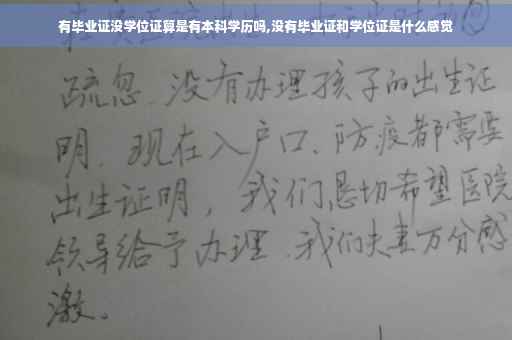 有毕业证没学位证算是有本科学历吗,没有毕业证和学位证是什么感觉
疏忽、没有办理孩子的出生证
明、现在入户口、防疫都需要
出生证明，我们恳切希望医院
领导给予办理、我们夫妻万分感
激。